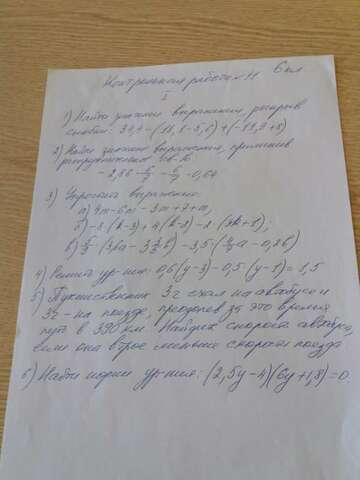 Контрольная работа №11 6 кл
I
1) Найти значение выражения, раскрыв
скобки: 34,4-(18,1-5,6)+(-11,9+8)
2) Найти значение выражения, применив
распределительное св-во
3) Упростить выражение:
а) 4m-6m-3m+7+m,
б) -8(k-3)+4(k-2)-2(3k+1),
4) Решить ур-ние: 0,6(y-3)-0,5(y-1)=1,5
5) Путешественник 3ч ехал на автобусе и
3ч - на поезде, преодолев за это время
путь в 390 км. Найдите скорость автобуса,
если она втрое меньше скорости поезда
6) Найти корни ур-ния: (2,5y-4)(6y+1,8)=0.